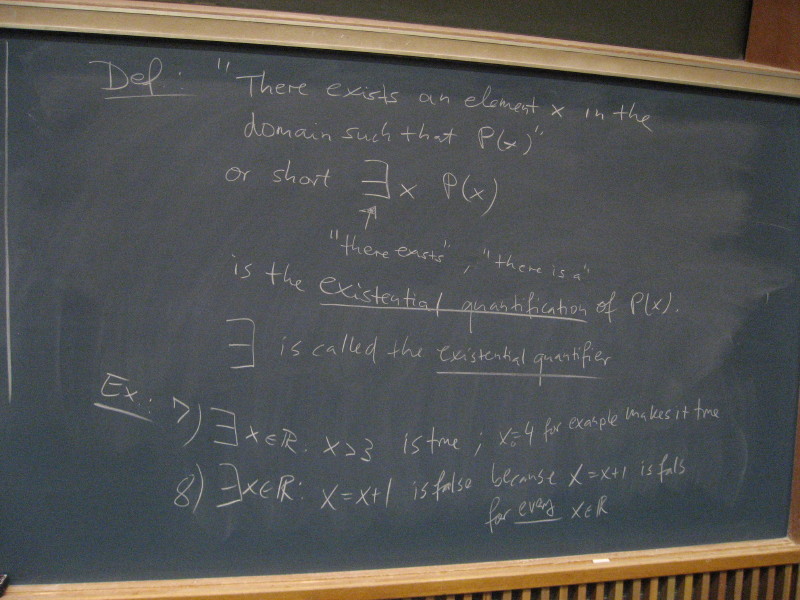 Def.: "There exists an element x in the
domain such that P(x)"
or short ∃x P(x)
"there exists", "there is a"
is the existential quantification of P(x).
∃ is called the existential quantifier
Ex.: 7) ∃x∈ℝ: x>3 is true; x=4 for example makes it true
8) ∃x∈ℝ: x=x+1 is false because x=x+1 is fals
for every x∈ℝ